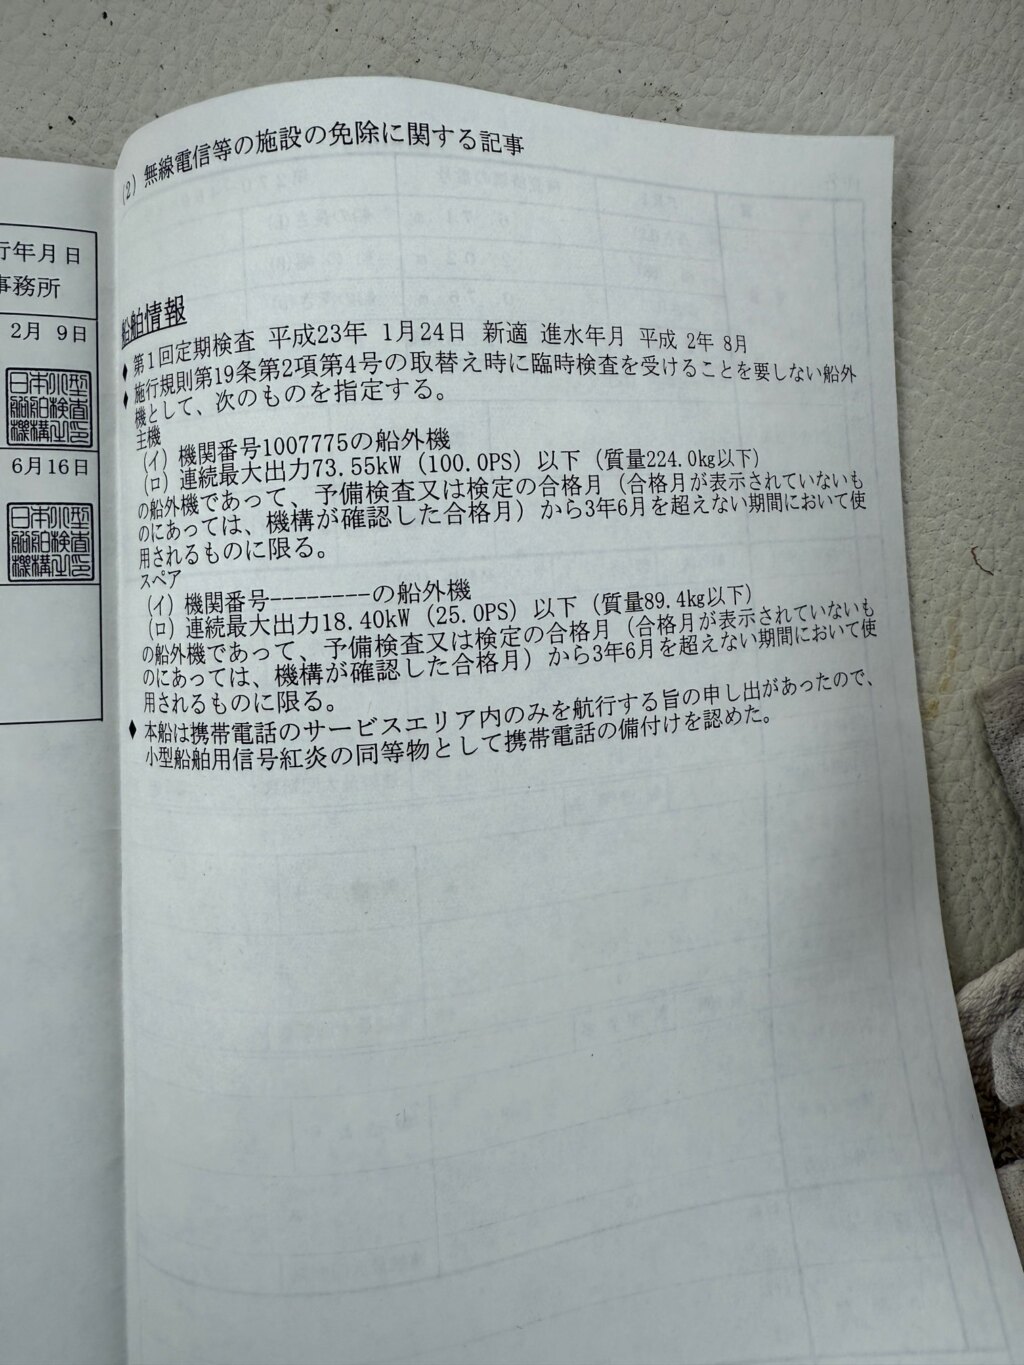 行年月日
事務所
2月 9日
日本小型船舶検査機構之印
6月16日
日本小型船舶検査機構之印
(2) 無線電信等の施設の免除に関する記事
船舶情報
♦ 第1回定期検査 平成23年 1月24日 新適 進水年月 平成 2年 8月
♦ 施行規則第19条第2項第4号の取替え時に臨時検査を受けることを要しない船外
機として、次のものを指定する。
主機
(イ) 機関番号1007775の船外機
(ロ) 連続最大出力73.55kW (100.0PS) 以下 (質量224.0kg以下)
の船外機であって、予備検査又は検定の合格月 (合格月が表示されていないも
のにあっては、機構が確認した合格月) から3年6月を超えない期間において使
用されるものに限る。
スペア
(イ) 機関番号--------の船外機
(ロ) 連続最大出力18.40kW (25.0PS) 以下 (質量89.4kg以下)
の船外機であって、予備検査又は検定の合格月 (合格月が表示されていないも
のにあっては、機構が確認した合格月) から3年6月を超えない期間において使
用されるものに限る。
♦ 本船は携帯電話のサービスエリア内のみを航行する旨の申し出があったので、
小型船舶用信号紅炎の同等物として携帯電話の備付けを認めた。